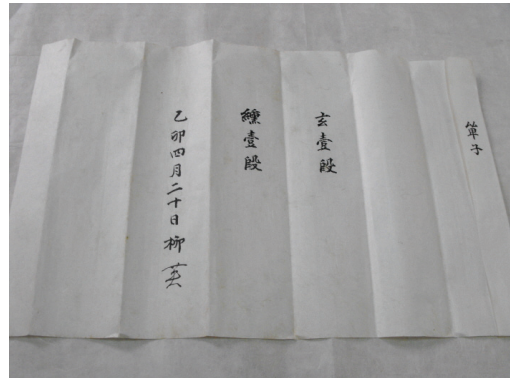 單子
玄壹段
纁壹段
乙卯四月二十日 柳